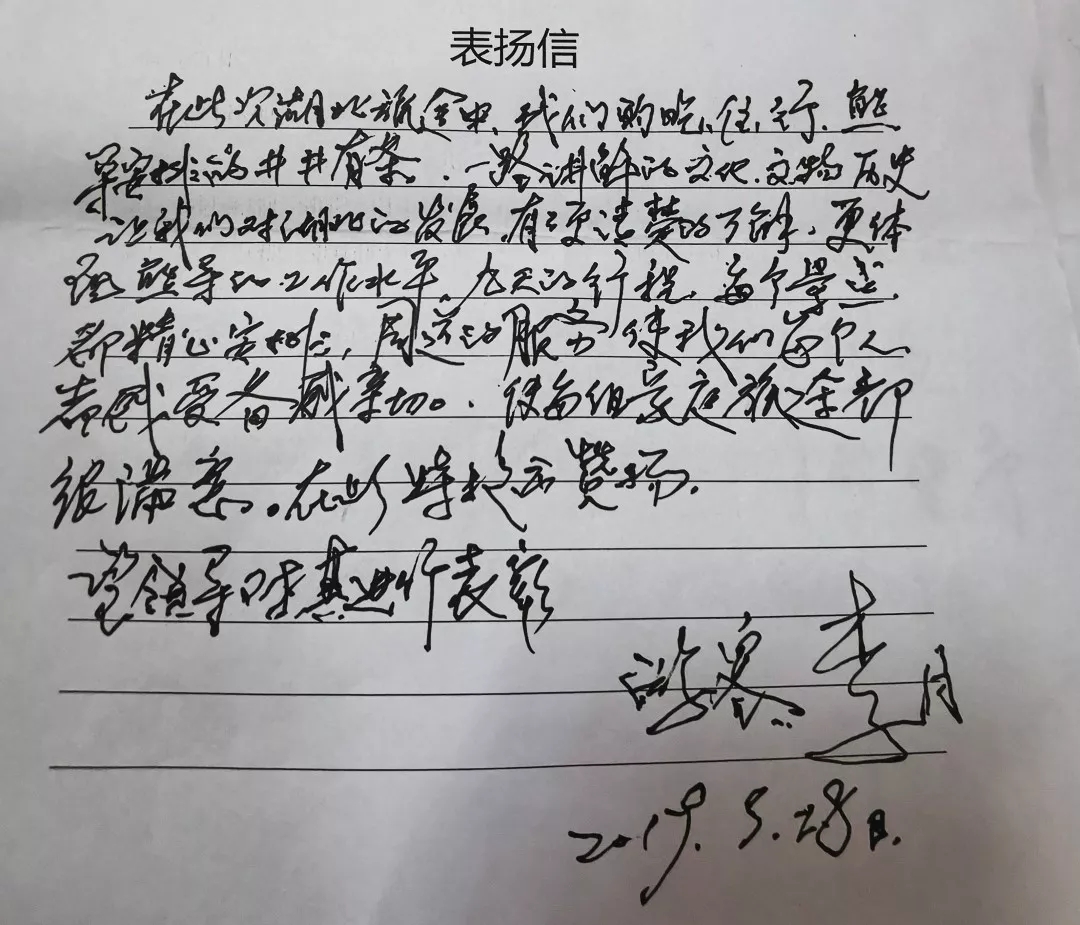 表扬信
在此次湖北旅途中,我们的吃、住、行、熊
导安排的井井有条。一路讲解的文化、文物历史
让我们对湖北的发展,有了更清楚的了解,更体
现熊导的工作水平。九天的行程,每个景点
都精心安排,周道的服务使我们每个人
都感受备感亲切。使每组家庭旅途都
很满意。在此特提出赞扬.
望领导对其进行表彰
游客 李
2019.5.28日.